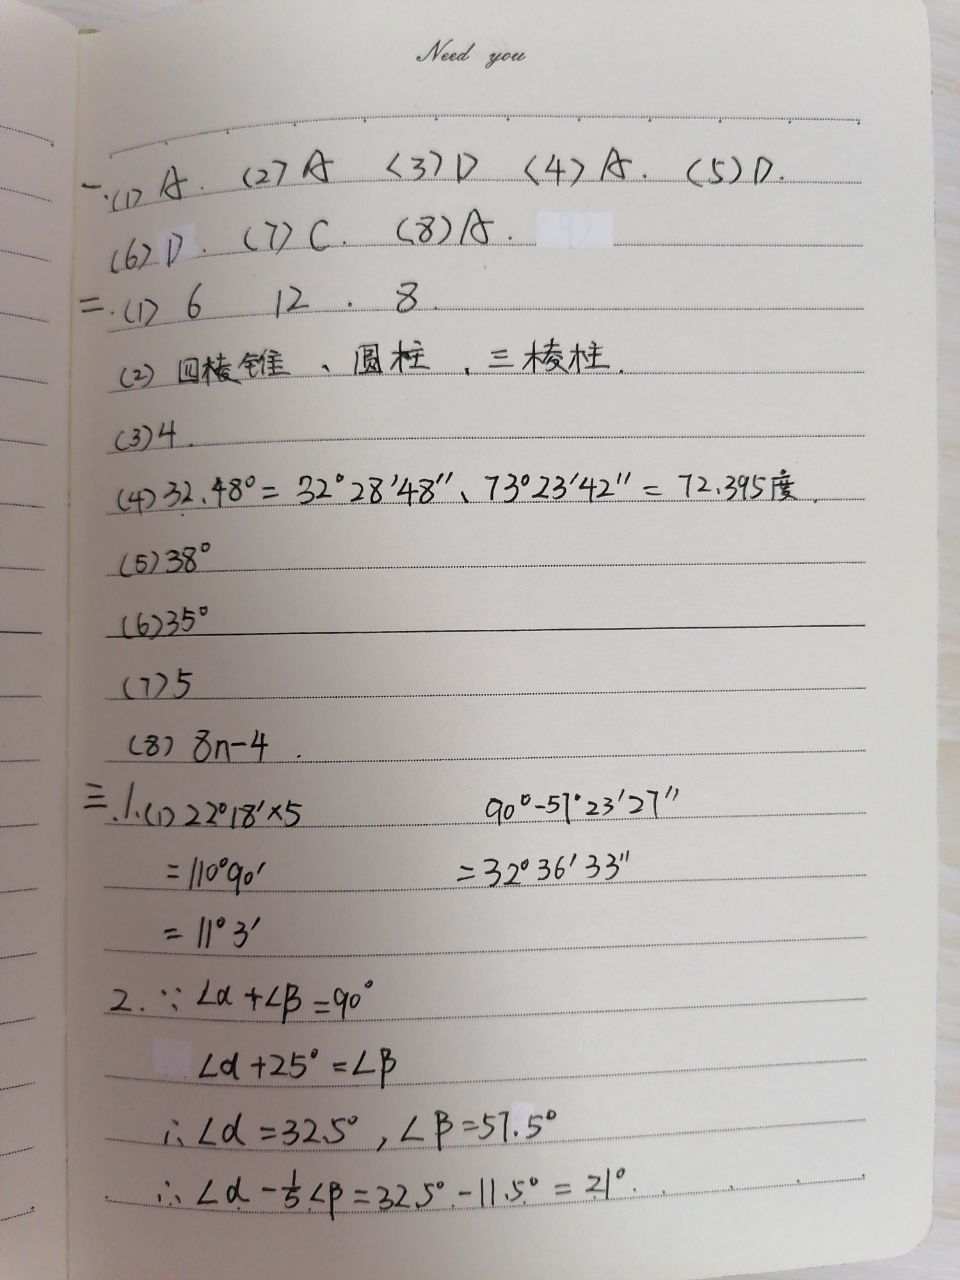 Need you
一.(1)A. (2)A (3)D (4)A. (5)D.
(6)D. (7)C. (8)A.
二.(1) 6 12 . 8.
(2) 四棱锥、圆柱、三棱柱.
(3)4.
(4)32.48°=32°28′48″、73°23′42″=72.395度.
(5)38°
(6)35°
(7)5
(8) 8n-4.
三.1.(1)22°18′×5 90°-57°23′27″
=110°90′ =32°36′33″
=11°3′
2.∵∠α+∠β=90°
∠α+25°=∠β
∴∠α=32.5°,∠β=57.5°
∴∠α-1/5∠β=32.5°-11.5°=21°.